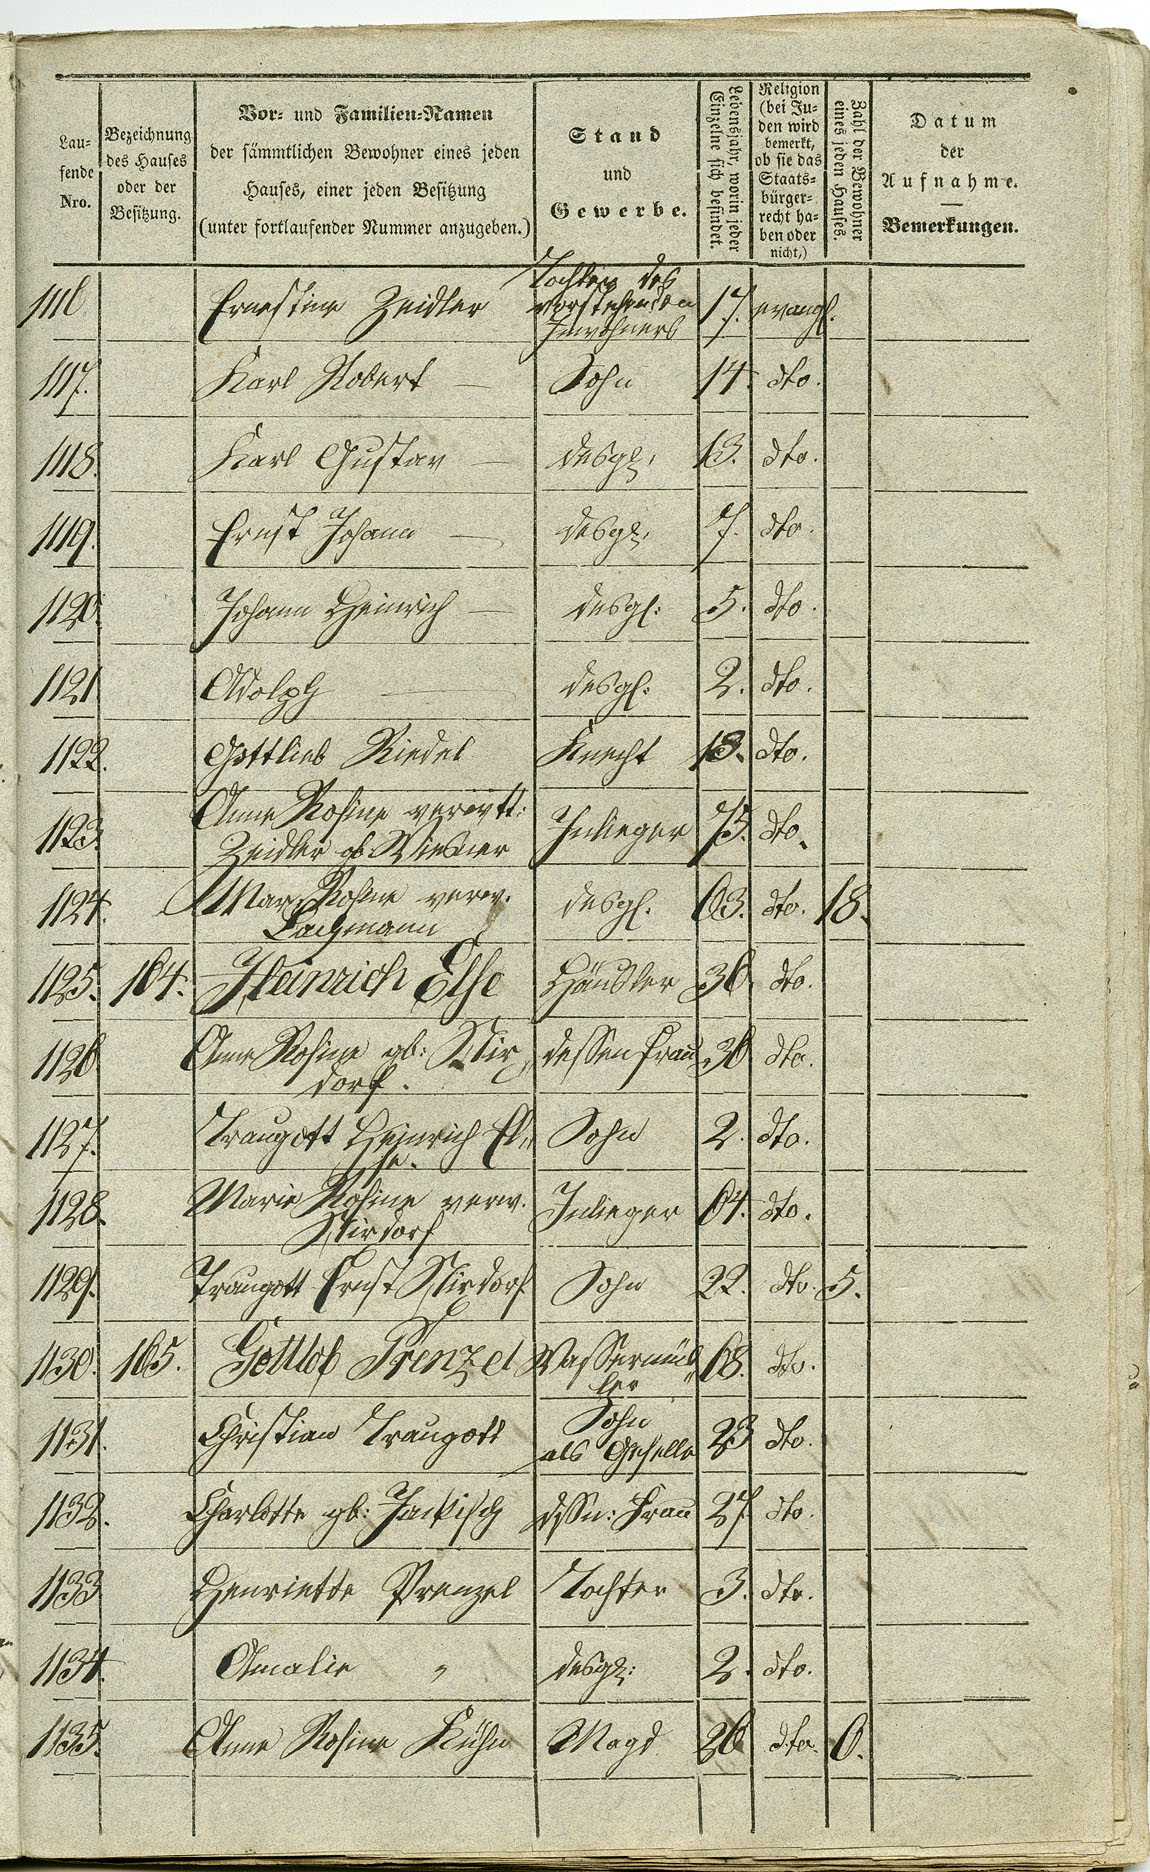 Laufende Nro.
Bezeichnung
des Hauses
oder der
Besitzung.
Vor- und Familien-Namen
der sämmtlichen Bewohner eines jeden
Hauses, einer jeden Besitzung
(unter fortlaufender Nummer anzugeben.)
Stand
und
Gewerbe.
Lebensjahr, worin jeder
Einzelne sich befindet.
Religion
(bei Ju-
den wird
bemerkt,
ob sie das
Staats-
bürger-
recht ha-
ben oder
nicht,)
Zahl der Bewohner
eines jeden Hauses.
Datum
der
Aufnahme.
Bemerkungen.
Tochter des
vorstehenden
1116 Ernestine Zeidler 17. evangl.
Inwohners
1117. Karl Robert — Sohn 14. dto.
1118. Karl Gustav — desgl. 13. dto.
1119. Ernst Johann — desgl. 7. dto.
1120. Johann Heinrich — desgl: 5. dto.
1121 Adolph — desgl: 2. dto.
1122. Gottlieb Riedel Knecht 18. dto.
1123. Anne Rosine verwtt: Inlieger 75. dto.
Zeidler gb Wiesner
1124. Mar. Rosine verw. desgl. 63. dto. 18.
Lachmann
1125. 164. Heinrich Else Häusler 36. dto.
1126. Anne Rosine gb: Stir= dessen Frau 36 dto.
dorf.
1127. Traugott Heinrich El= Sohn 2. dto.
se.
1128. Marie Rosine verw. Inlieger 64. dto.
Stirdorf
1129. Traugott Ernst Stirdorf Sohn 22. dto. 5.
1130. 165. Gottlob Prenzel Wassermül= 68. dto.
ler
1131. Christian Traugott Sohn 23 dto.
als Geselle
1132. Charlotte gb: Jackisch dssn: Frau 27. dto.
1133 Henriette Prenzel Tochter 3. dto.
1134. Amalie " desgl: 2. dto.
1135. Anne Rosine Kühn Magd 26 dto. 6.